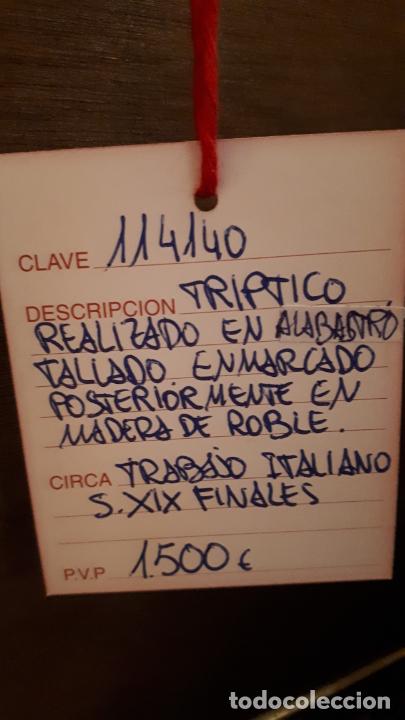 CLAVE 114140
DESCRIPCION TRIPTICO
REALIZADO EN ALABASTRO
TALLADO. ENMARCADO
POSTERIORMENTE EN
MADERA DE ROBLE.
CIRCA TRABAJO ITALIANO
S. XIX FINALES
P.V.P 1.500 €
todocoleccion